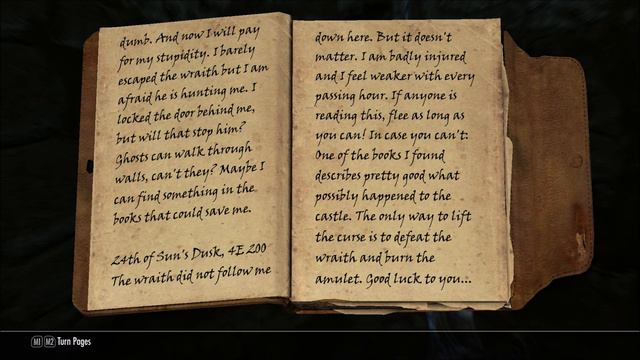 dumb. And now I will pay
for my stupidity. I barely
escaped the wraith but I am
afraid he is hunting me. I
locked the door behind me,
but will that stop him?
Ghosts can walk through
walls, can't they? Maybe I
can find something in the
books that could save me.
24th of Sun's Dusk, 4E 200
The wraith did not follow me
down here. But it doesn't
matter. I am badly injured
and I feel weaker with every
passing hour. If anyone is
reading this, flee as long as
you can! In case you can't:
One of the books I found
describes pretty good what
possibly happened to the
castle. The only way to lift
the curse is to defeat the
wraith and burn the
amulet. Good luck to you...
M1 M2 Turn Pages